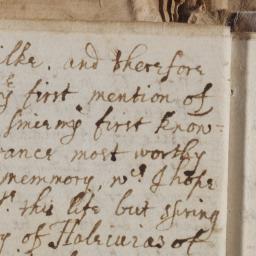 ilke. and therefore
first mention of
my first know=
rance most worthy
memmory, wch I hope
this life but spring
of of